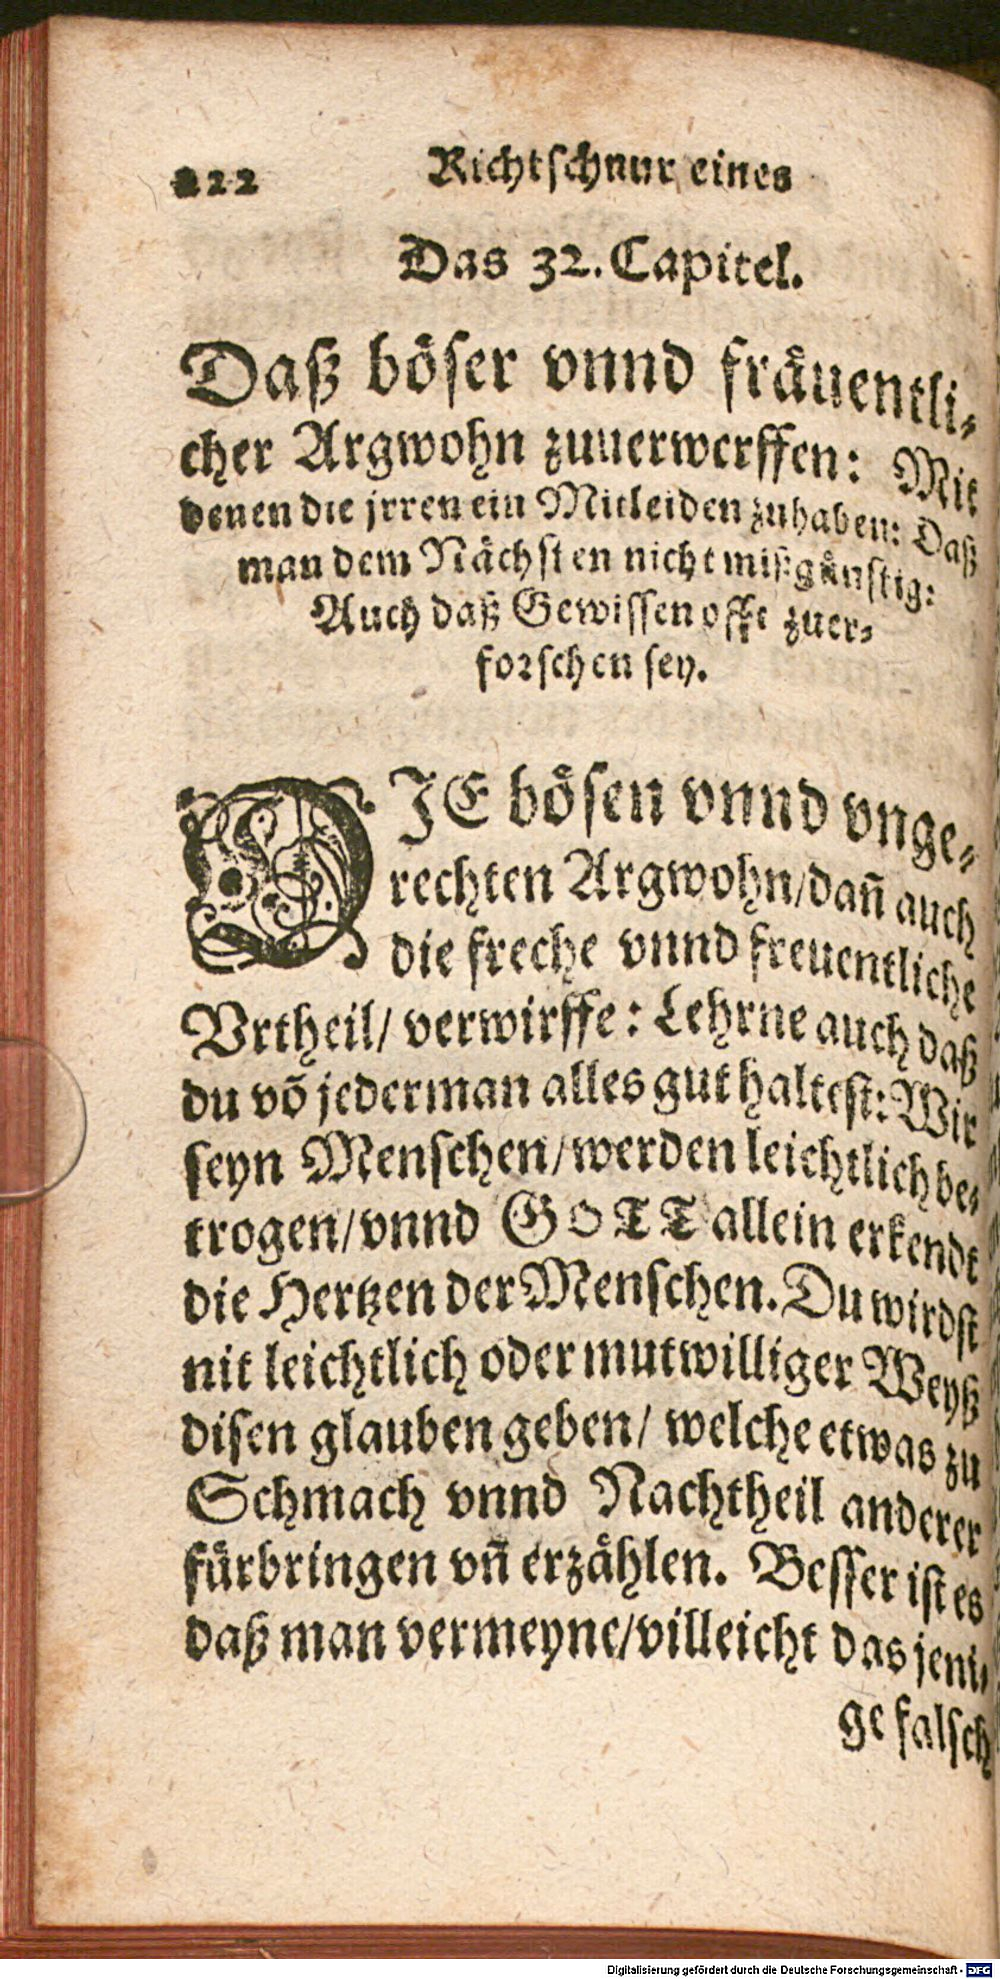 222 Richtschnur eines
Das 32. Capitel.
Daß böser vnnd fräuentli-
cher Argwohn zuuerwerffen: Mit
denen die jrren ein Mitleiden zuhaben: Daß
man dem Nächsten nicht mißgünstig:
Auch daß Gewissen offt zuer-
forschen sey.
DIE bösen vnnd vnge-
rechten Argwohn/dañ auch
die freche vnnd freuentliche
Vrtheil/ verwirffe: Lehrne auch daß
du võ jederman alles gut haltest: Wir
seyn Menschen/werden leichtlich be-
trogen/vnnd GOTT allein erkendt
die Hertzen der Menschen. Du wirdst
nit leichtlich oder mutwilliger Weyß
disen glauben geben/ welche etwas zu
Schmach vnnd Nachtheil anderer
fürbringen vñ erzählen. Besser ist es
daß man vermeyne/villeicht das jeni-
ge falsch
Digitalisierung gefördert durch die Deutsche Forschungsgemeinschaft - DFG